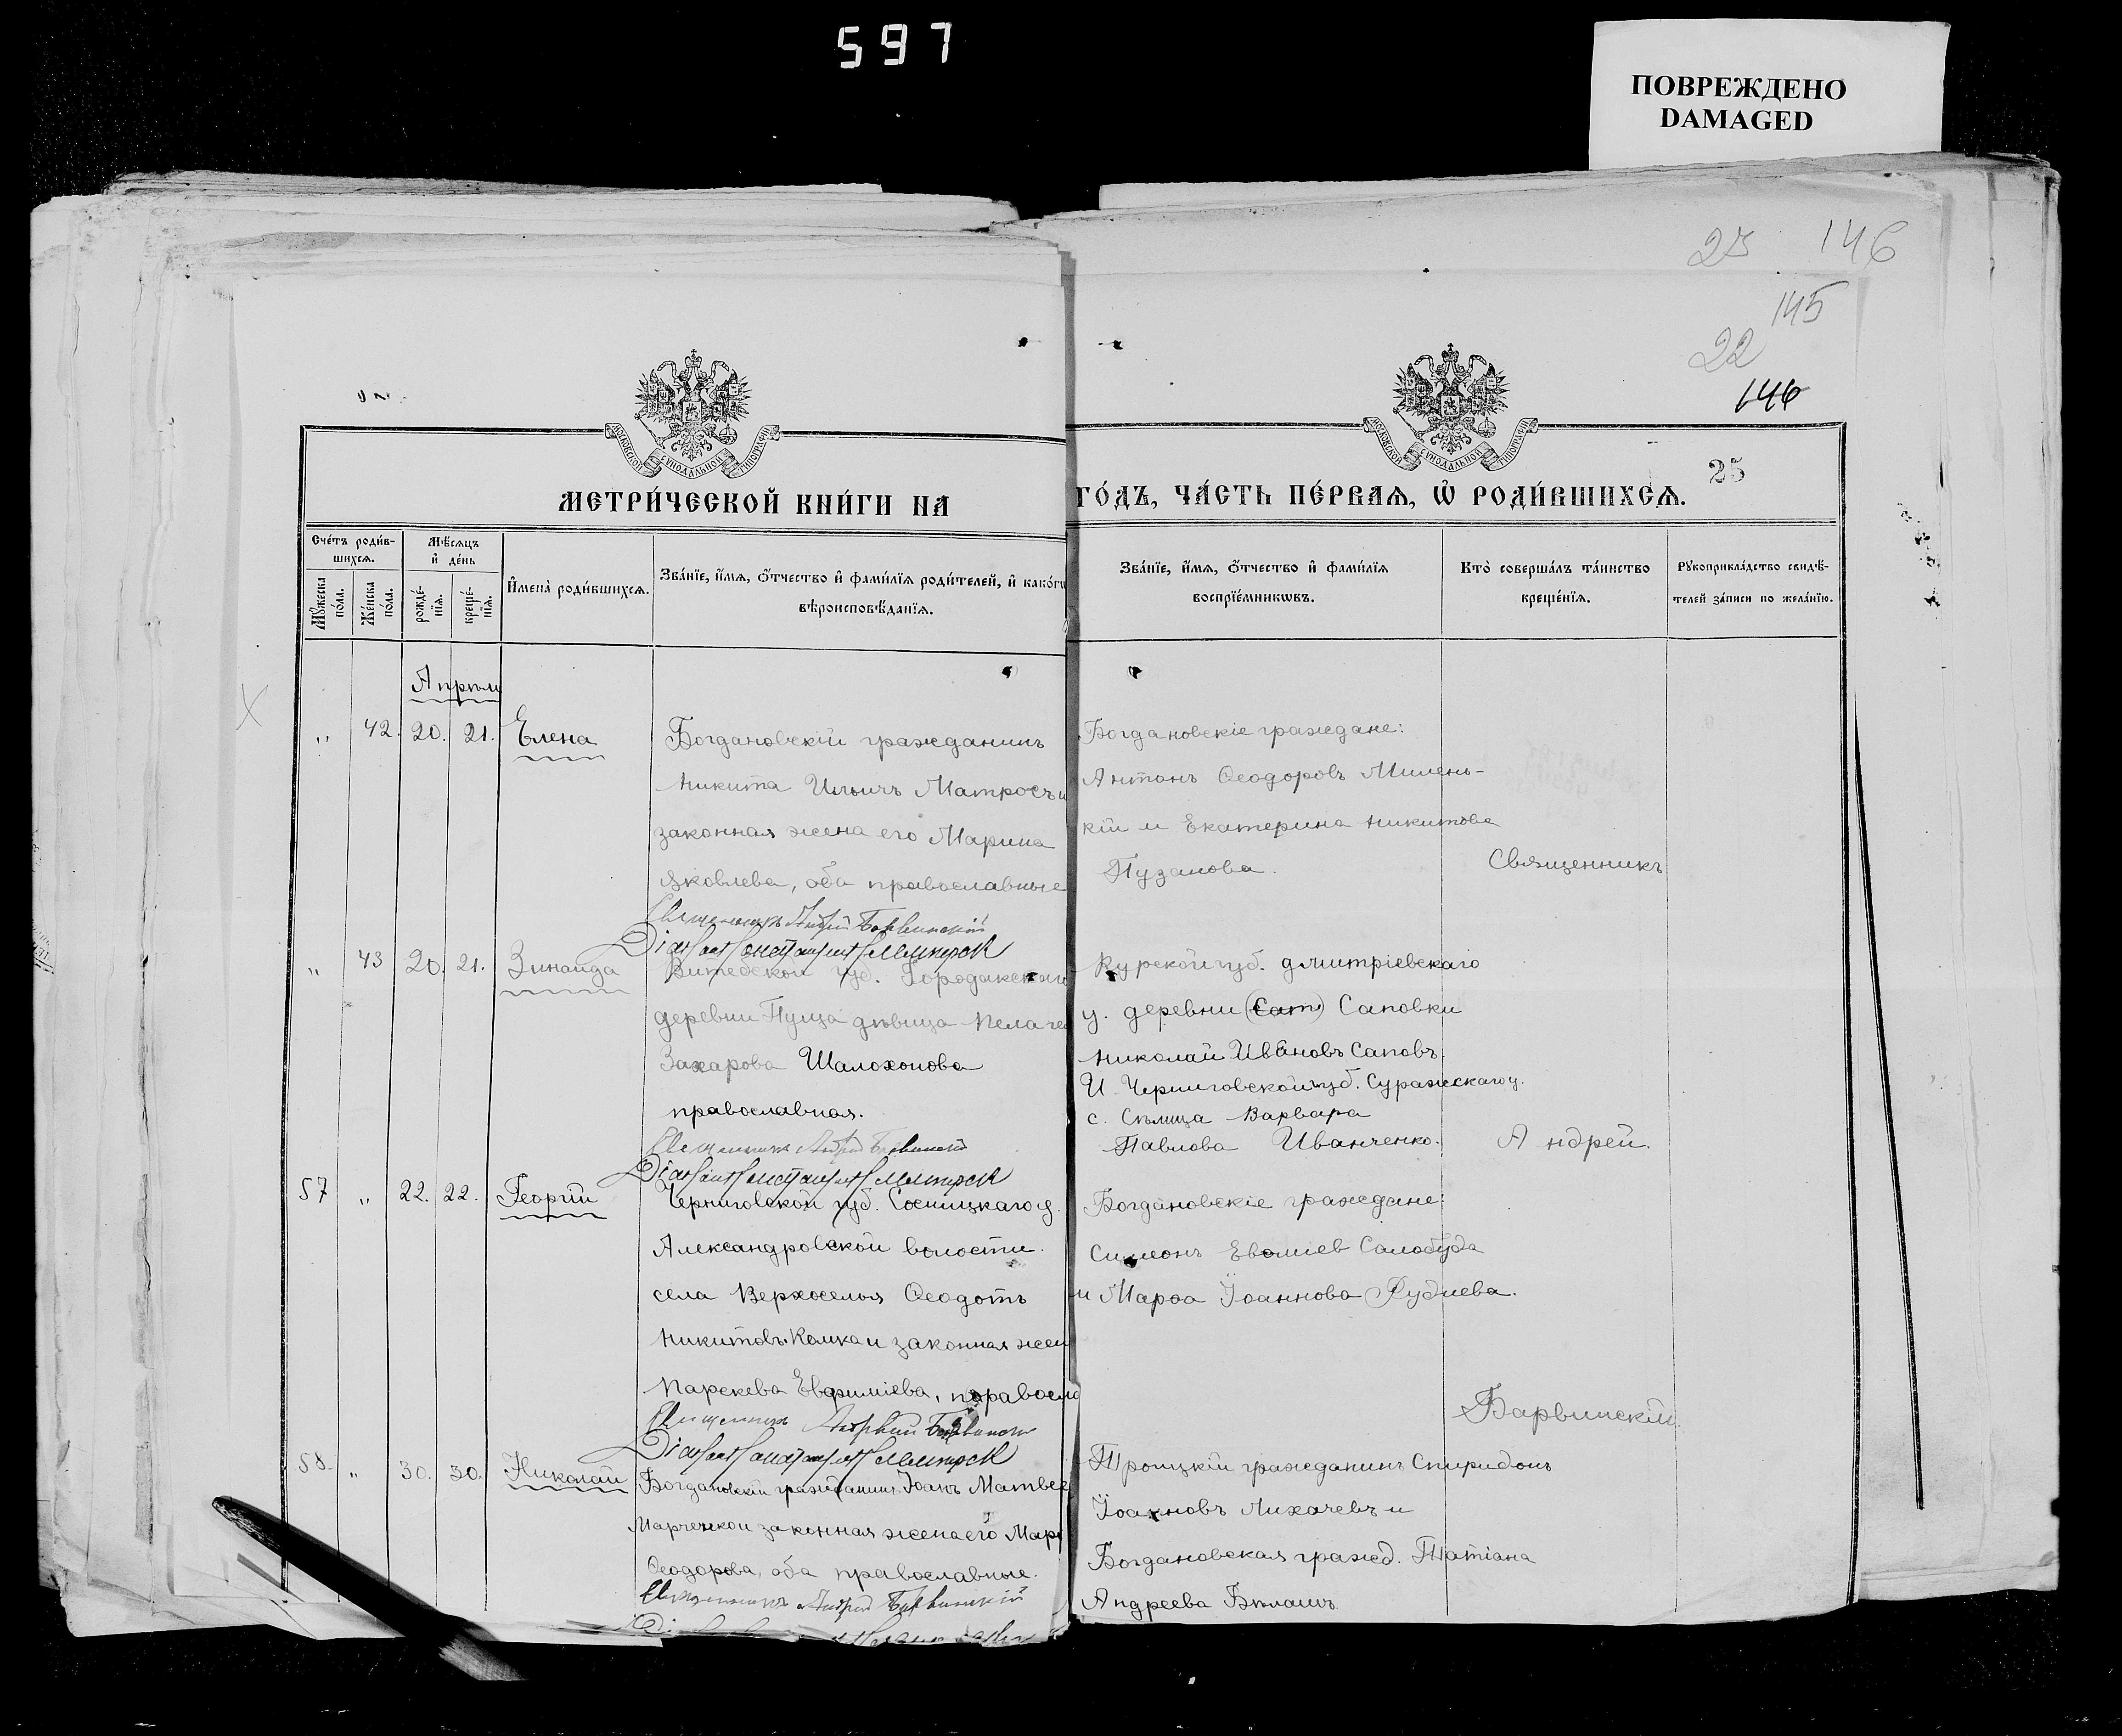 597
ПОВРЕЖДЕНО
DAMAGED
25 146
145
22
146
МОСКОВСКОЙ СѴНОДАЛЬНОЙ ТИПОГРАФІИ
МОСКОВСКОЙ СѴНОДАЛЬНОЙ ТИПОГРАФІИ
25
МЕТРИ́ЧЕСКОЙ КНИ́ГИ НА
ГО́ДЪ, ЧА́СТЬ ПЕ́РВАѦ, Ѡ҆ РОДИ́ВШИХСѦ.
Сче́тъ роди́в-
шихсѧ.
Мꙋ́жеска
по́ла.
Же́нска
по́ла.
Мѣ́сѧцъ
и҆ де́нь
рожде́-
нїѧ.
креще́-
нїѧ.
И҆мена̀ роди́вшихсѧ.
Зва́нїе, и҆́мѧ, ѻ҆́тчество и҆ фами́лїѧ роди́телей, и҆ како́гѡ
вѣроисповѣ́данїѧ.
Зва́нїе, и҆́мѧ, ѻ҆́тчество и҆ фами́лїѧ
воспрїе́мникѡвъ.
Кто̀ соверша́лъ та́инство
креще́нїѧ.
Рꙋкоприкла́дство свидѣ́-
телей за́писи по жела́нїю.
Апрѣль
" 42. 20. 21. Елена
Богдановскій гражданинъ
Никита Ильичъ Матросъ и
законная жена его Марина
Яковлева, оба православные
Священникъ Андрей Барвинскій
Богдановскіе граждане:
Антонъ Ѳеодоровъ Милень-
кій и Екатерина Никитова
Пузанова.
Священникъ
" 43 20. 21. Зинаида
Витебской губ. Городокскаго
деревни Пуща дѣвица Пелаге
Захарова Шалохонова
православная.
Священникъ Андрей Барвинскій
Курской губ. Дмитріевскаго
у. деревни (Сап) Саповки
Николай Ивановъ Саповъ.
И Черниговской губ. Суражскаго у.
с. Сѣлища Варвара
Павлова Иванченко.
Андрей.
57 " 22. 22. Георгій
Черниговской губ. Сосницкаго у.
Александровской волости.
села Верхоселья Ѳеодотъ
Никитовъ и законная жен
Парскева Евфиміева, правосла
Священникъ Андрей Барвинскій
Богдановскіе граждане:
Симеонъ Салобуда
и Марѳа Іоаннова
Барвинскій.
58. " 30. 30. Николай
Богдановскій гражданинъ Іоанъ Матвее
Марченко и законная жена его Мар
Ѳеодорова, оба православные.
Священникъ Андрей Барвинскій
Троицкій гражданинъ Спиридонъ
Іоанновъ Лихачевъ и
Богдановская гражд. Татіана
Андреева Бѣлашъ